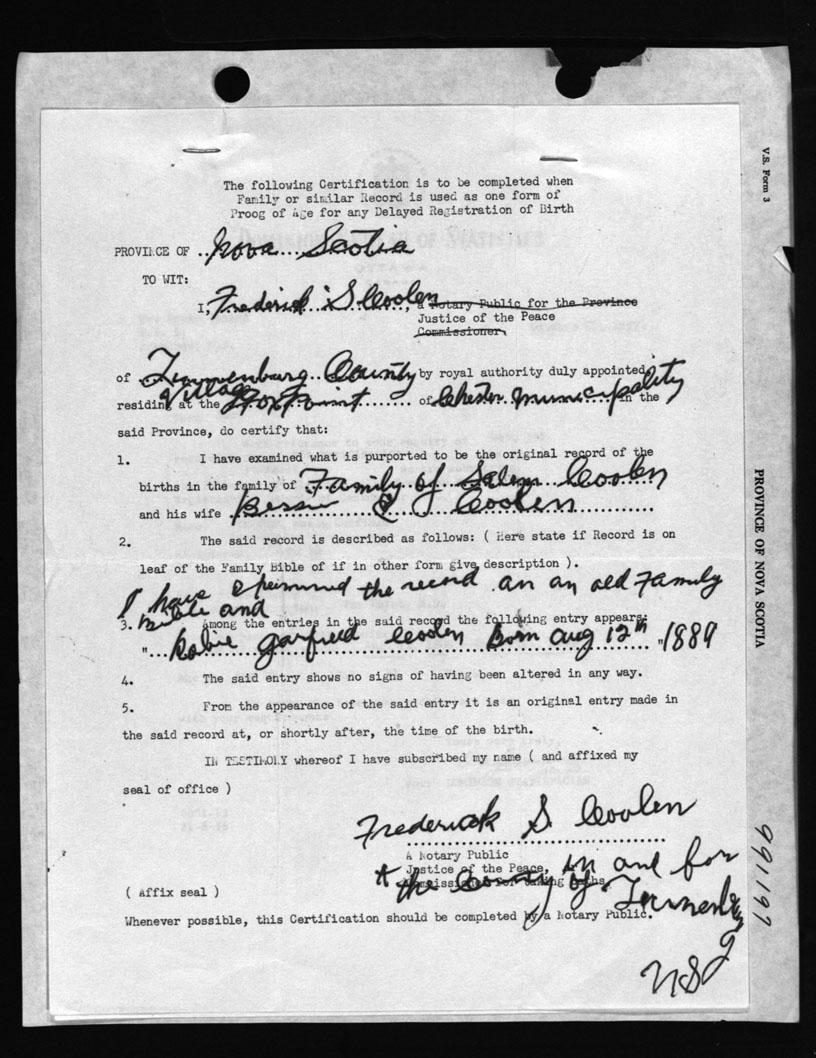 V.S. Form 3
The following Certification is to be completed when
Family or similar Record is used as one form of
Proog of Age for any Delayed Registration of Birth
PROVINCE OF ..Nova Scotia
TO WIT:
I, Frederick S Coolen, a Notary Public for the Province
Justice of the Peace
Commissioner
of Lunnenburg County by royal authority duly appointed
residing at the Village Fox Point of Chester municipality in the
said Province, do certify that:
1. I have examined what is purported to be the original record of the
births in the family of Family of Salem Coolen
and his wife Bessie Coolen
2. The said record is described as follows: ( Here state if Record is on
leaf of the Family Bible of if in other form give description ).
I have exammined the record on an old Family
Bible and
3. Among the entries in the said record the following entry appears:
"... Robie Garfield Coolen Born Aug 12th " 1889
4. The said entry shows no signs of having been altered in any way.
5. From the appearance of the said entry it is an original entry made in
the said record at, or shortly after, the time of the birth.
IN TESTIMONY whereof I have subscribed my name ( and affixed my
seal of office )
Frederick S. Coolen
A Notary Public
Justice of the Peace, in and for
Commissioner for taking Oaths
the County of Lunenburg
( Affix seal )
Whenever possible, this Certification should be completed by a Notary Public.
N S
PROVINCE OF NOVA SCOTIA
991197